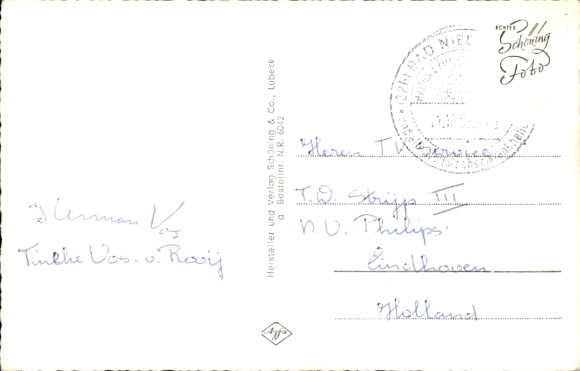 Herman Vos
Tinthe Vos - v. Rooij
Hersteller und Verlag Schöning & Co., Lübeck
a Bestellnr. N.R. 6042
ECHTES
Schöning
Foto
(22b) BAD NIED
Heren TV Service
T.D. Strijp III
N.V. Philips
Eindhoven
Holland
Agfa